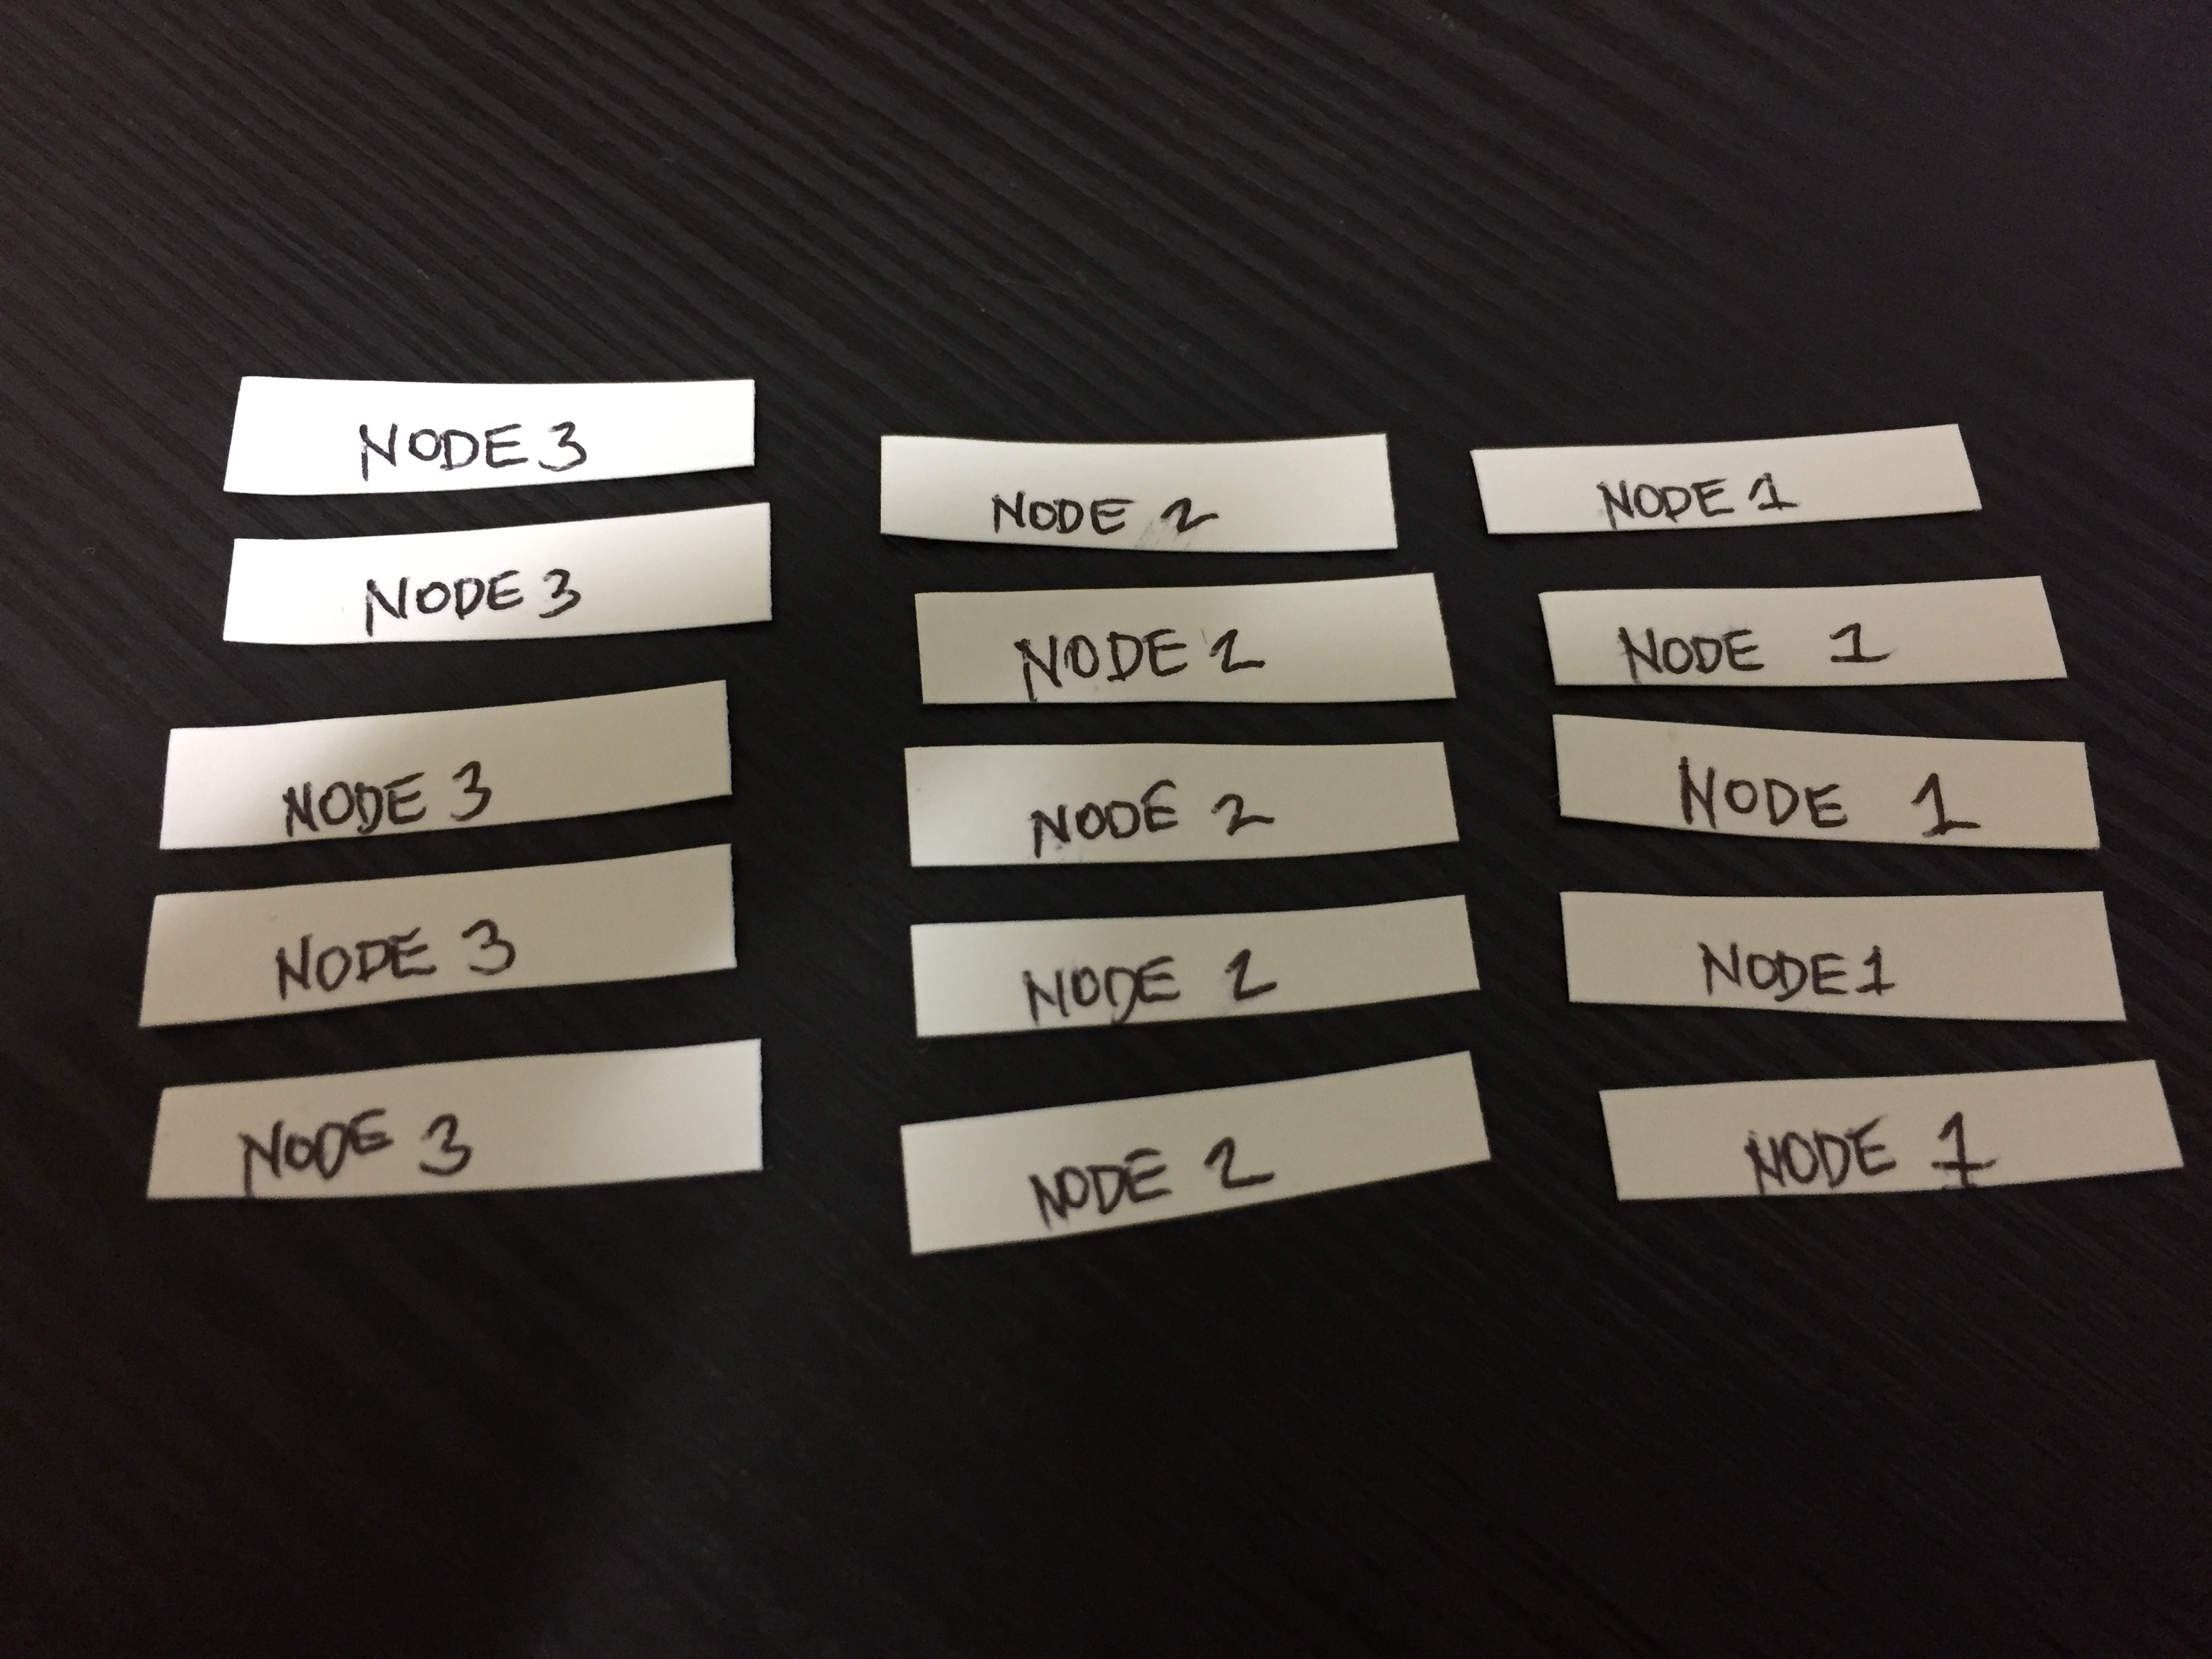 NODE 3
NODE 2
NODE 1
NODE 3
NODE 2
NODE 1
NODE 3
NODE 2
NODE 1
NODE 3
NODE 2
NODE 1
NODE 3
NODE 2
NODE 1